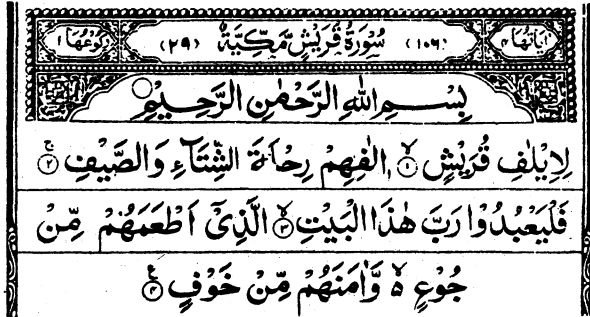 اٰیَاتُهَا ٤ (١٠٦) سُوْرَةُ قُرَیْشٍ مَّکِّیَّةٌ (٢٩) رُکُوْعُهَا ١
بِسْمِ اللّٰهِ الرَّحْمٰنِ الرَّحِیْمِ
لِاِیْلٰفِ قُرَیْشٍ ۙ﴿١﴾ اٖلٰفِهِمْ رِحْلَةَ الشِّتَآءِ وَالصَّیْفِ ۚ﴿٢﴾
فَلْیَعْبُدُوْا رَبَّ هٰذَا الْبَیْتِ ۙ﴿٣﴾ الَّذِیْۤ اَطْعَمَهُمْ مِّنْ
جُوْعٍ ۙ۬ وَّاٰمَنَهُمْ مِّنْ خَوْفٍ ﴿٤﴾